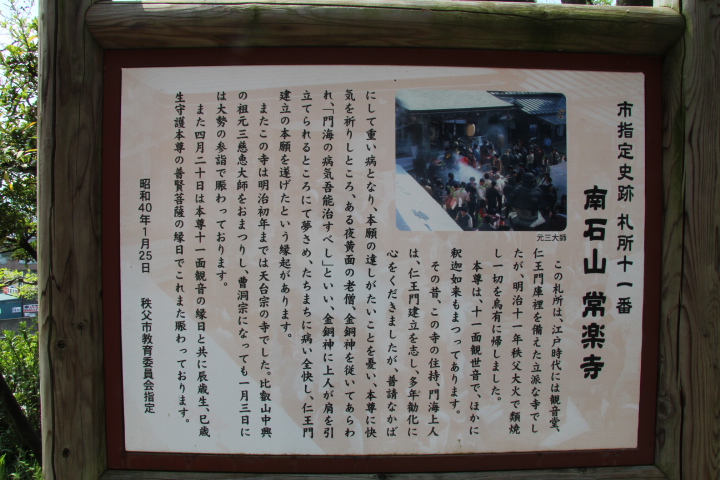 市指定史跡 札所十一番
南石山 常楽寺
この札所は、江戸時代には観音堂、
仁王門庫裡を備えた立派な寺でし
たが、明治十一年秩父大火で類焼
し一切を烏有に帰しました。
本尊は、十一面観世音で、ほかに
釈迦如来もまつってあります。
その昔、この寺の住持、門海上人
は、仁王門建立を志し、多年勧化に
心をくだきましたが、普請なかば
にして重い病となり、本願の達しがたいことを憂い、本尊に快
気を祈りしところ、ある夜黄面の老僧、金銅神を従いてあらわ
れ、「門海の病気吾能治すべし」といい、金銅神に上人が肩を引
立てられるところにて夢さめ、たちまちに病い全快し、仁王門
建立の本願を遂げたという縁起があります。
またこの寺は明治初年までは天台宗の寺でした。比叡山中興
の祖元三慈恵大師をおまつりし、曹洞宗になっても一月三日に
は大勢の参詣で賑わっております。
また四月二十日は本尊十一面観音の縁日と共に辰歳生、巳歳
生守護本尊の普賢菩薩の縁日でこれまた賑わっております。
昭和40年1月25日 秩父市教育委員会指定
元三大師